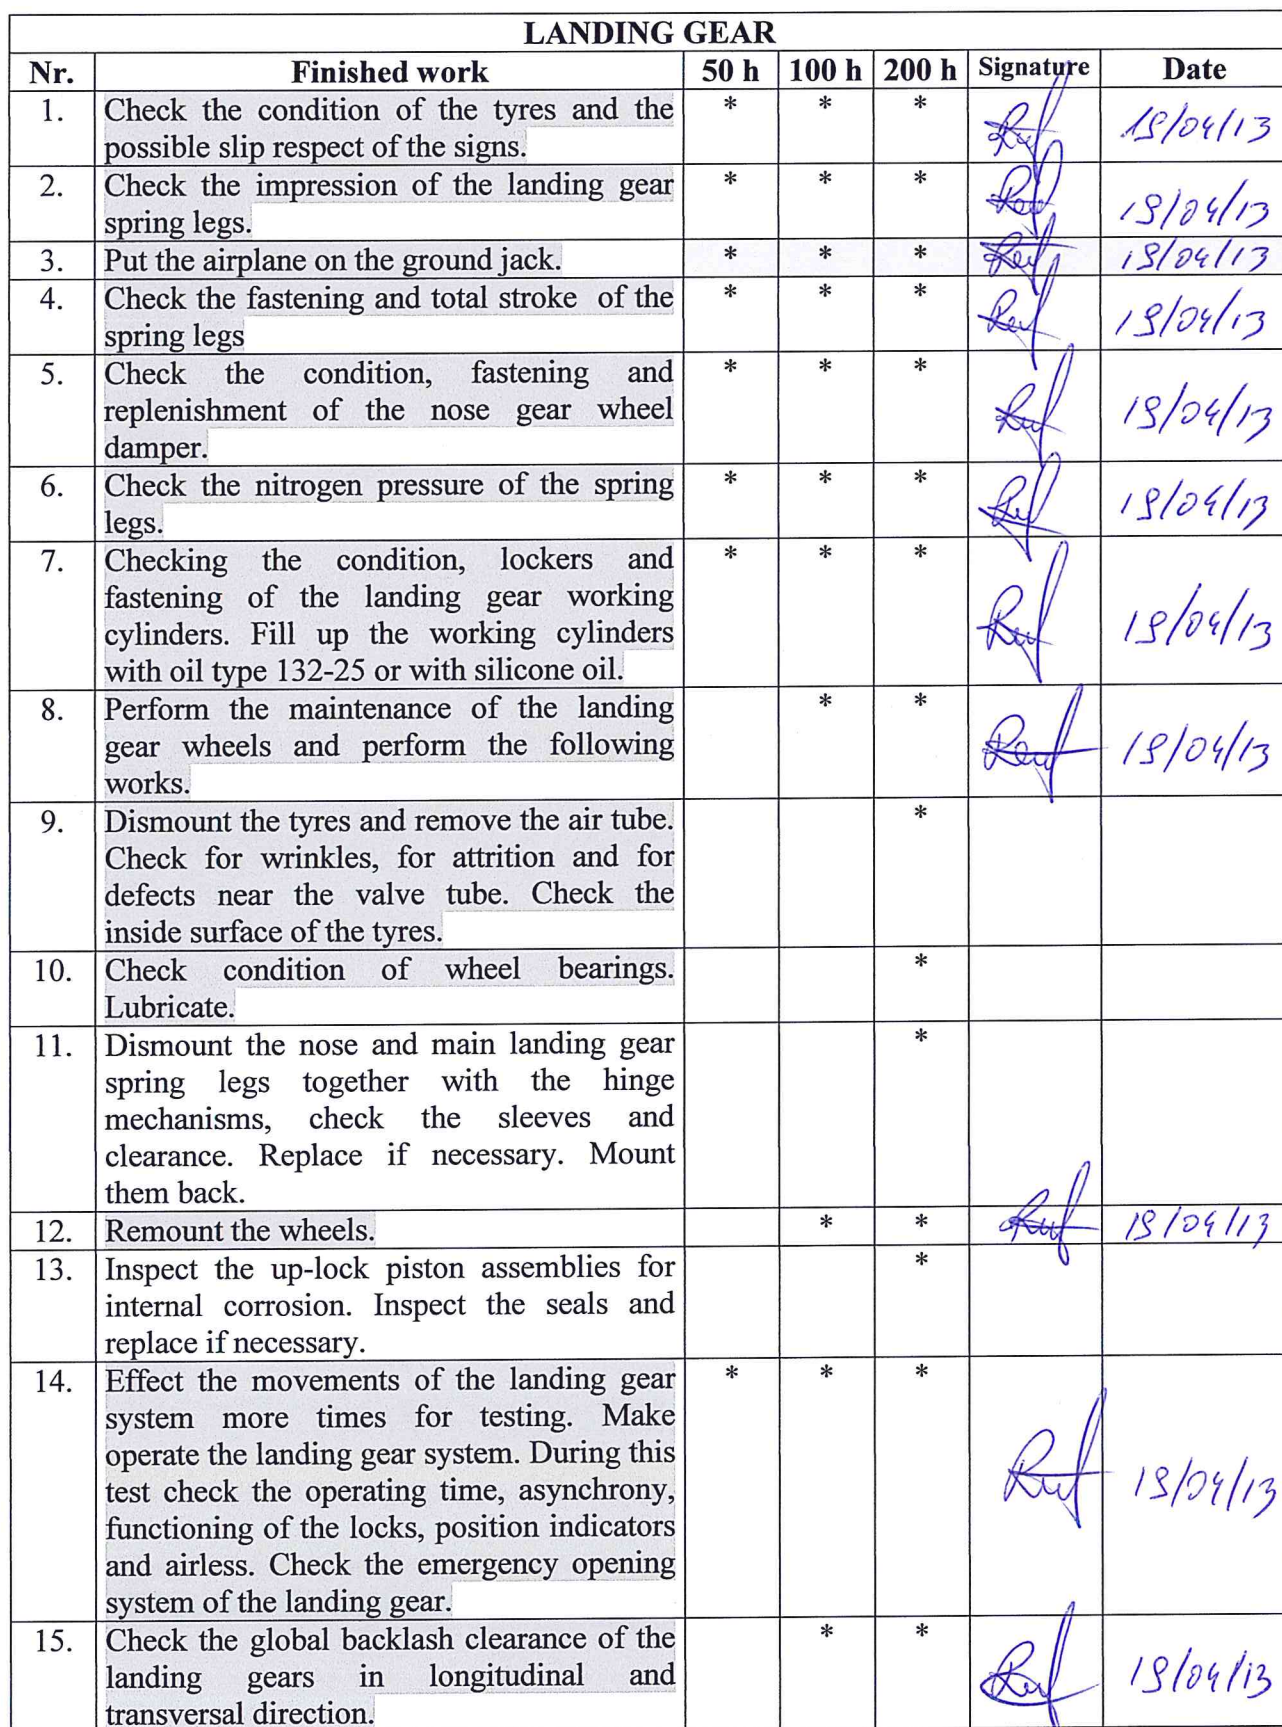 LANDING GEAR
Nr. Finished work 50 h 100 h 200 h Signature Date
1. Check the condition of the tyres and the * * * 19/04/13
possible slip respect of the signs.
2. Check the impression of the landing gear * * * 19/04/13
spring legs.
3. Put the airplane on the ground jack. * * * 19/04/13
4. Check the fastening and total stroke of the * * * 19/04/13
spring legs
5. Check the condition, fastening and * * * 19/04/13
replenishment of the nose gear wheel
damper.
6. Check the nitrogen pressure of the spring * * * 19/04/13
legs.
7. Checking the condition, lockers and * * * 19/04/13
fastening of the landing gear working
cylinders. Fill up the working cylinders
with oil type 132-25 or with silicone oil.
8. Perform the maintenance of the landing * * 19/04/13
gear wheels and perform the following
works.
9. Dismount the tyres and remove the air tube. *
Check for wrinkles, for attrition and for
defects near the valve tube. Check the
inside surface of the tyres.
10. Check condition of wheel bearings. *
Lubricate.
11. Dismount the nose and main landing gear *
spring legs together with the hinge
mechanisms, check the sleeves and
clearance. Replace if necessary. Mount
them back.
12. Remount the wheels. * * 19/04/13
13. Inspect the up-lock piston assemblies for *
internal corrosion. Inspect the seals and
replace if necessary.
14. Effect the movements of the landing gear * * * 19/04/13
system more times for testing. Make
operate the landing gear system. During this
test check the operating time, asynchrony,
functioning of the locks, position indicators
and airless. Check the emergency opening
system of the landing gear.
15. Check the global backlash clearance of the * * 19/04/13
landing gears in longitudinal and
transversal direction.